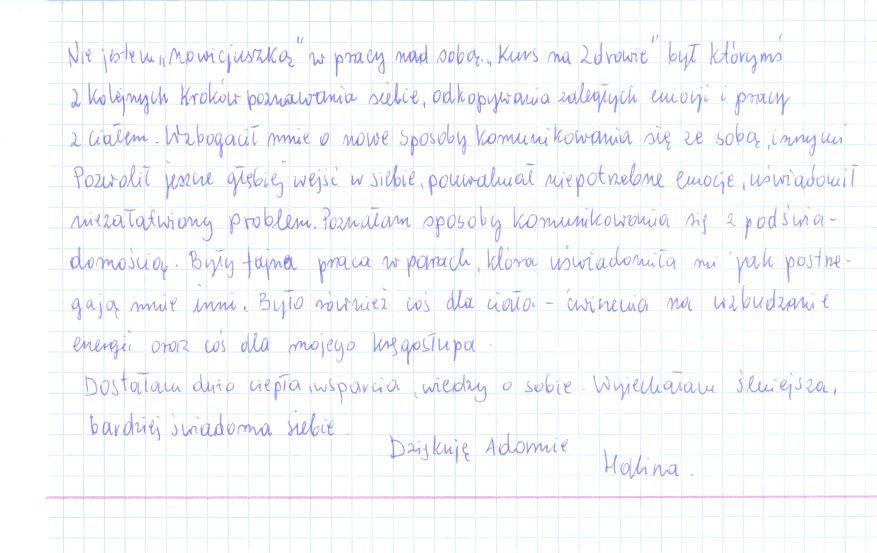 Nie jestem „nowicjuszką" w pracy nad sobą. „Kurs na Zdrowie" był którymś
z kolejnych kroków poznawania siebie, odkopywania zaległych emocji i pracy
z ciałem. Wzbogacił mnie o nowe sposoby komunikowania się ze sobą, innymi
Pozwolił jeszcze głębiej wejść w siebie, pouwalniał niepotrzebne emocje, uświadomił
niezałatwiony problem. Poznałam sposoby komunikowania się z podświa-
domością. Były fajna praca w parach, która uświadomiła mi jak postrze-
gają mnie inni. Było również coś dla ciała - ćwiczenia na wzbudzanie
energii oraz coś dla mojego kręgosłupa.
Dostałam dużo ciepła, wsparcia, wiedzy o sobie. Wyjechałam silniejsza,
bardziej świadoma siebie.
Dziękuję Adamie
Halina.